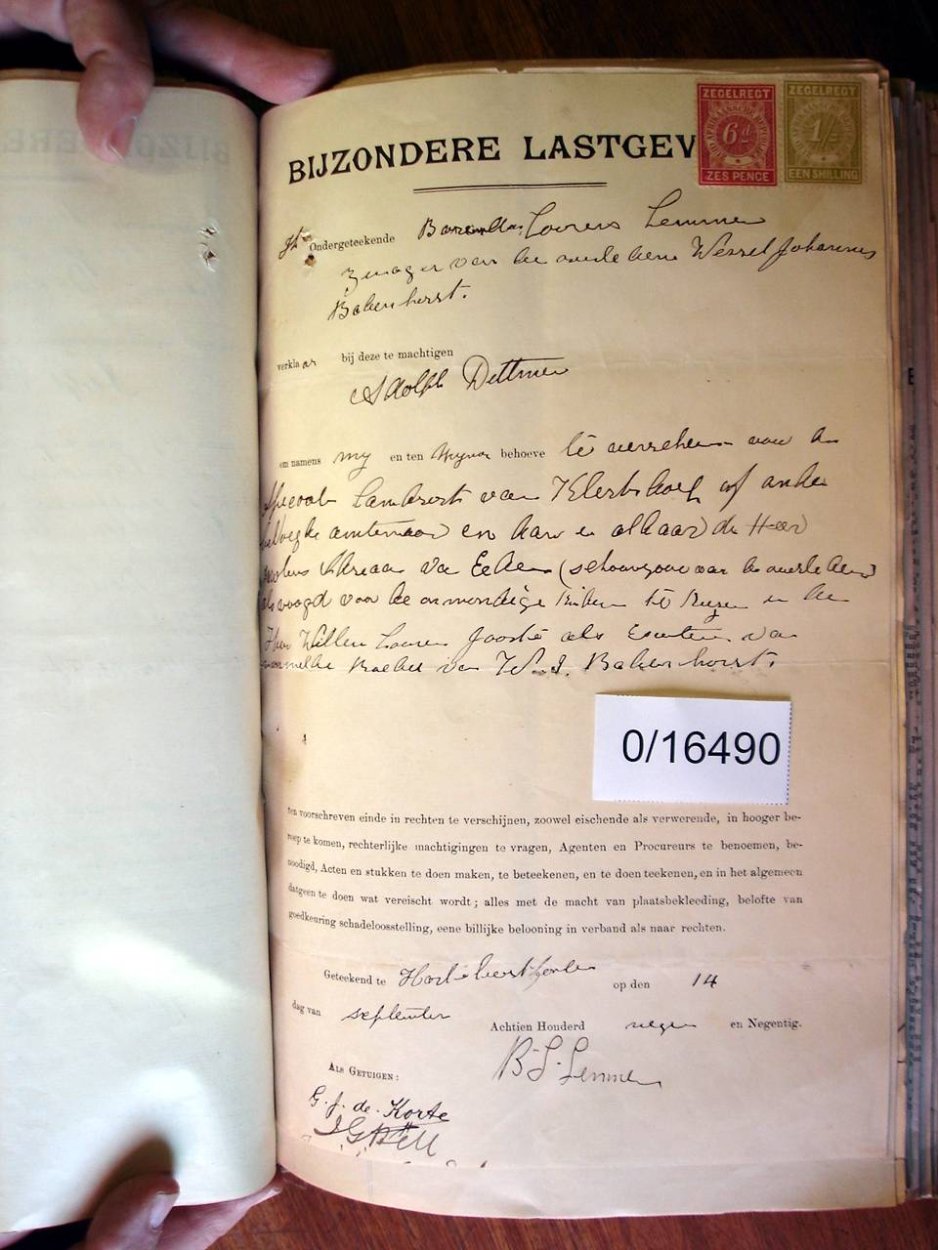 BIJZONDERE LASTGEV
ZEGELREGT
6d
ZES PENCE
ZEGELREGT
1/-
EEN SHILLING
Ondergeteekende Lourens Lemmer
zwager van de overledene Wessel Johannes
Bakenhorst.
verklaar bij deze te machtigen
Adolph Dettmer
om namens my en ten behoeve te verschenen voor de
Landrost van Klerksdorp of ander
en daar en aldaar de Heer
Adriaan van Eeden (schoonzoon van de overledene)
als voogd voor de onmondige te en de
Heer Willem Jooste als van
Boedel van W. J. Bakenhorst.
0/16490
ten voorschreven einde in rechten te verschijnen, zoowel eischende als verwerende, in hooger be-
roep te komen, rechterlijke machtigingen te vragen, Agenten en Procureurs te benoemen, be-
noodigd, Acten en stukken te doen maken, te beteekenen, en te doen teekenen, en in het algemeen
datgeen te doen wat vereischt wordt; alles met de macht van plaatsbekleeding, belofte van
goedkeuring schadeloosstelling, eene billijke belooning in verband als naar rechten.
Geteekend te op den 14
dag van september
Achtien Honderd negen en Negentig.
B. L. Lemmer
ALS GETUIGEN:
G. J. de Korte